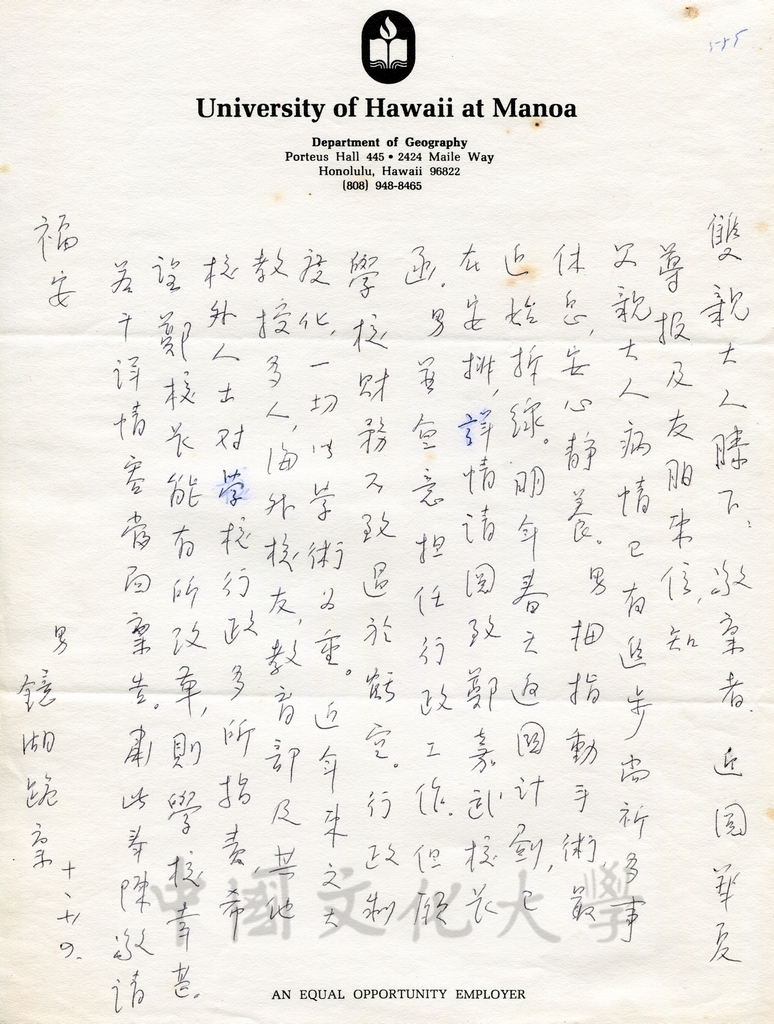 585
University of Hawaii at Manoa
Department of Geography
Porteus Hall 445 • 2424 Maile Way
Honolulu, Hawaii 96822
(808) 948-8465
雙親大人膝下：敬稟者．近閱華夏
導報及友朋來信，知
父親大人病情已有進步尚祈多事
休息，安心靜養。男拇指動手術最
近始拆線。明年春天返國計劃，已
在安排，詳情請閱致鄭嘉武校長
函。男並無意擔任行政工作。但願
學校財務不致過於虧空。行政制
度化，一切以學術為重。近年來文大
教授多人，海外校友，教育部及其他
校外人士對學校行政多所指責希
望鄭校長能有所改革，則學校幸甚。
若干詳情容當面稟告。肅此奉陳敬請
福安
男鏡湖跪稟 十、廿九．
中國文化大學
AN EQUAL OPPORTUNITY EMPLOYER